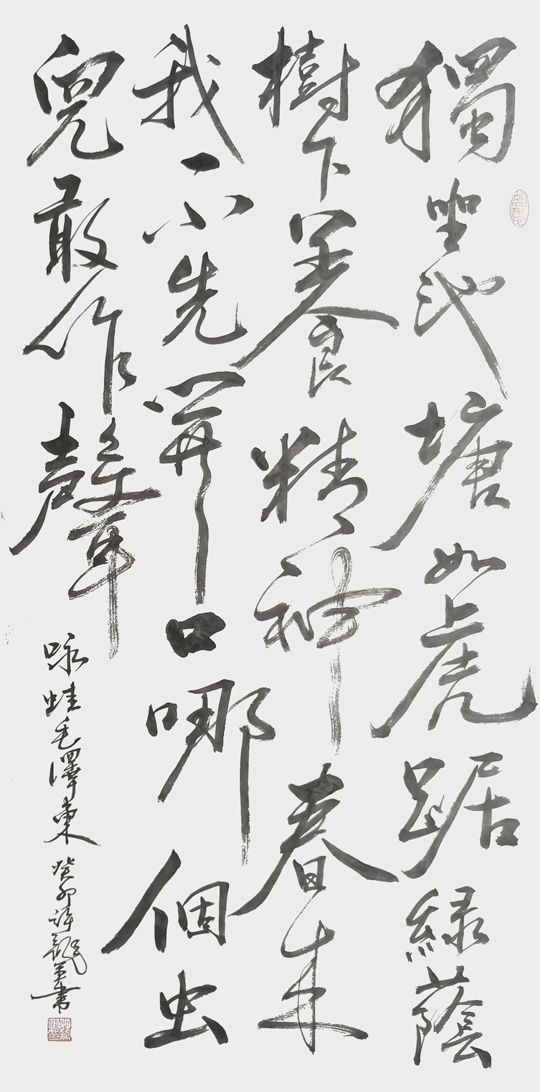 獨坐池塘如虎踞綠蔭
樹下養精神春来
我不先開口哪個虫
兒敢作聲
咏蛙毛澤東
癸卯許龍書